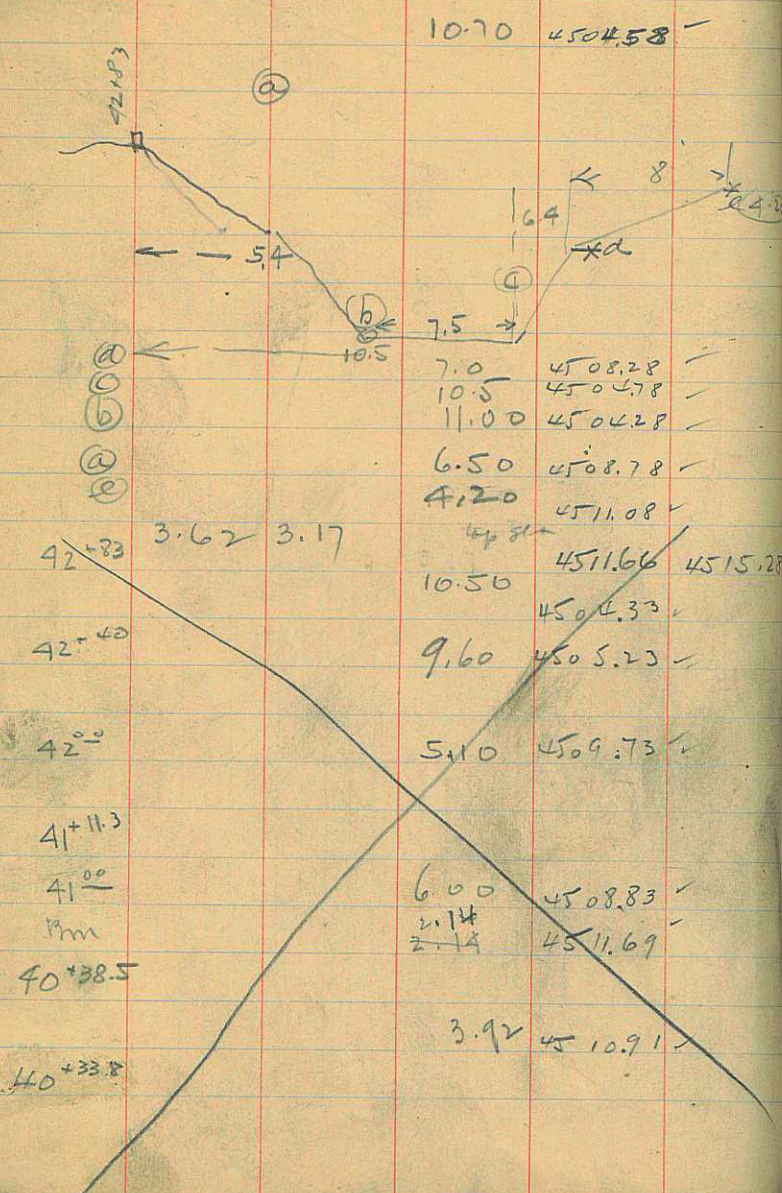 10.70 4504.58
42+83
a
8
6.4
e 4.2
d
5.4
c
b
7.5
10.5
d 7.0 4508.28
c 10.5 4504.78
b 11.00 4504.28
a 6.50 4508.78
e 4.20 4511.08
42+83 3.62 3.17 4511.66 4515.28
10.50 4504.33
42+40 9.60 4505.23
42 00 5.10 4509.73
41+11.3
41 00 6.00 4508.83
2.14
Bm 2.14 4511.69
40+38.5
3.92 4510.91
40+33.8